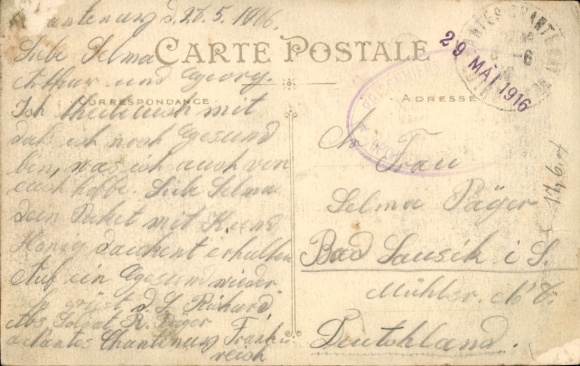 Chantenay d. 26.5.1916.
Liebe Selma
Arthur und Georg.
CARTE POSTALE
CORRESPONDANCE
ADRESSE
29 MAI 1916
Ich theile euch mit
das ich noch Gesund
bin, was ich auch von
euch hoffe. Liebe Selma
Dein Paket mit K. und
Honig dankent erhalten
Auf ein Gesund wieder
d. L. Richard
Abs. Soldat R. Päger
Nantes Chantenay Frank
reich
An Frau
Selma Päger
Bad Lausik i S.
Mühlstr.
Deutchland.
17.6.